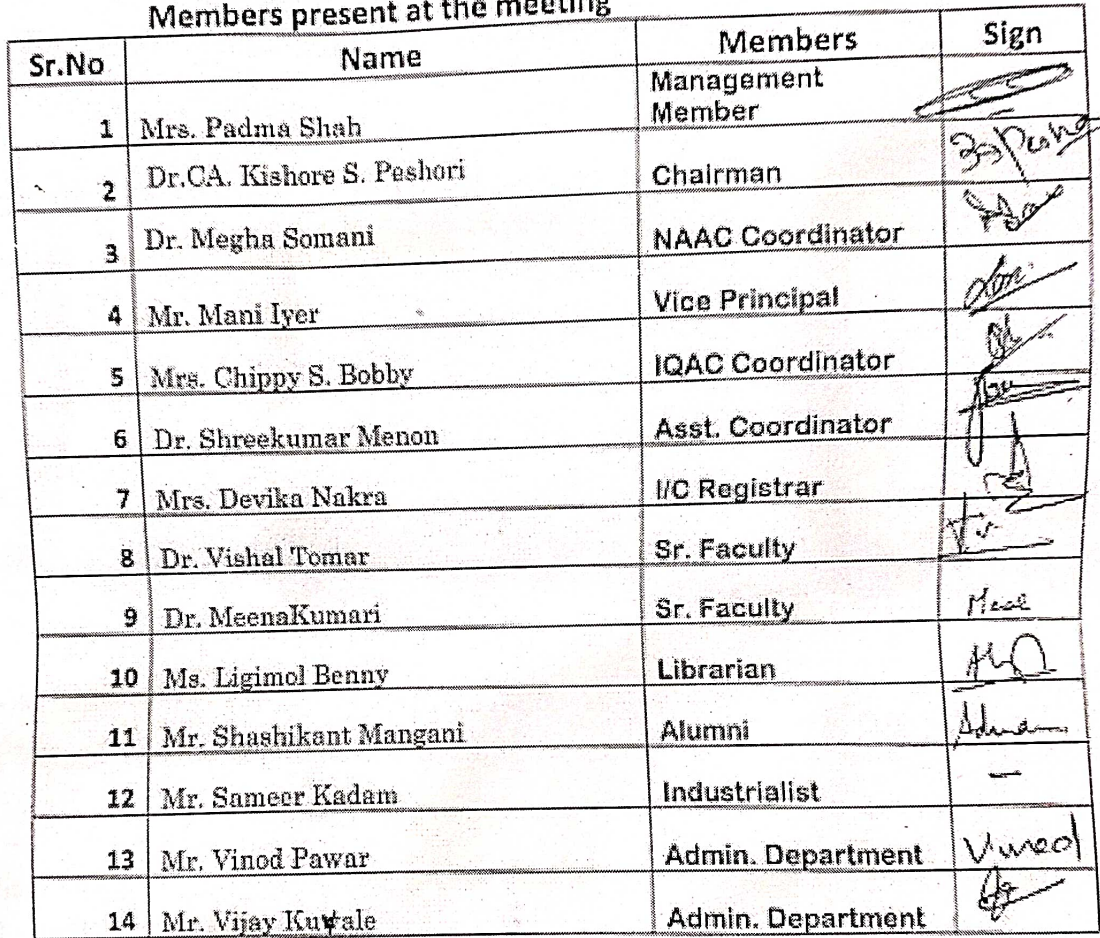 Members present at the meeting
Sr.No Name Members Sign
1 Mrs. Padma Shah Management Member
2 Dr.CA. Kishore S. Peshori Chairman
3 Dr. Megha Somani NAAC Coordinator
4 Mr. Mani Iyer Vice Principal
5 Mrs. Chippy S. Bobby IQAC Coordinator
6 Dr. Shreekumar Menon Asst. Coordinator
7 Mrs. Devika Nakra I/C Registrar
8 Dr. Vishal Tomar Sr. Faculty
9 Dr. MeenaKumari Sr. Faculty
10 Ms. Ligimol Benny Librarian
11 Mr. Shashikant Mangani Alumni
12 Mr. Sameer Kadam Industrialist —
13 Mr. Vinod Pawar Admin. Department
14 Mr. Vijay Admin. Department